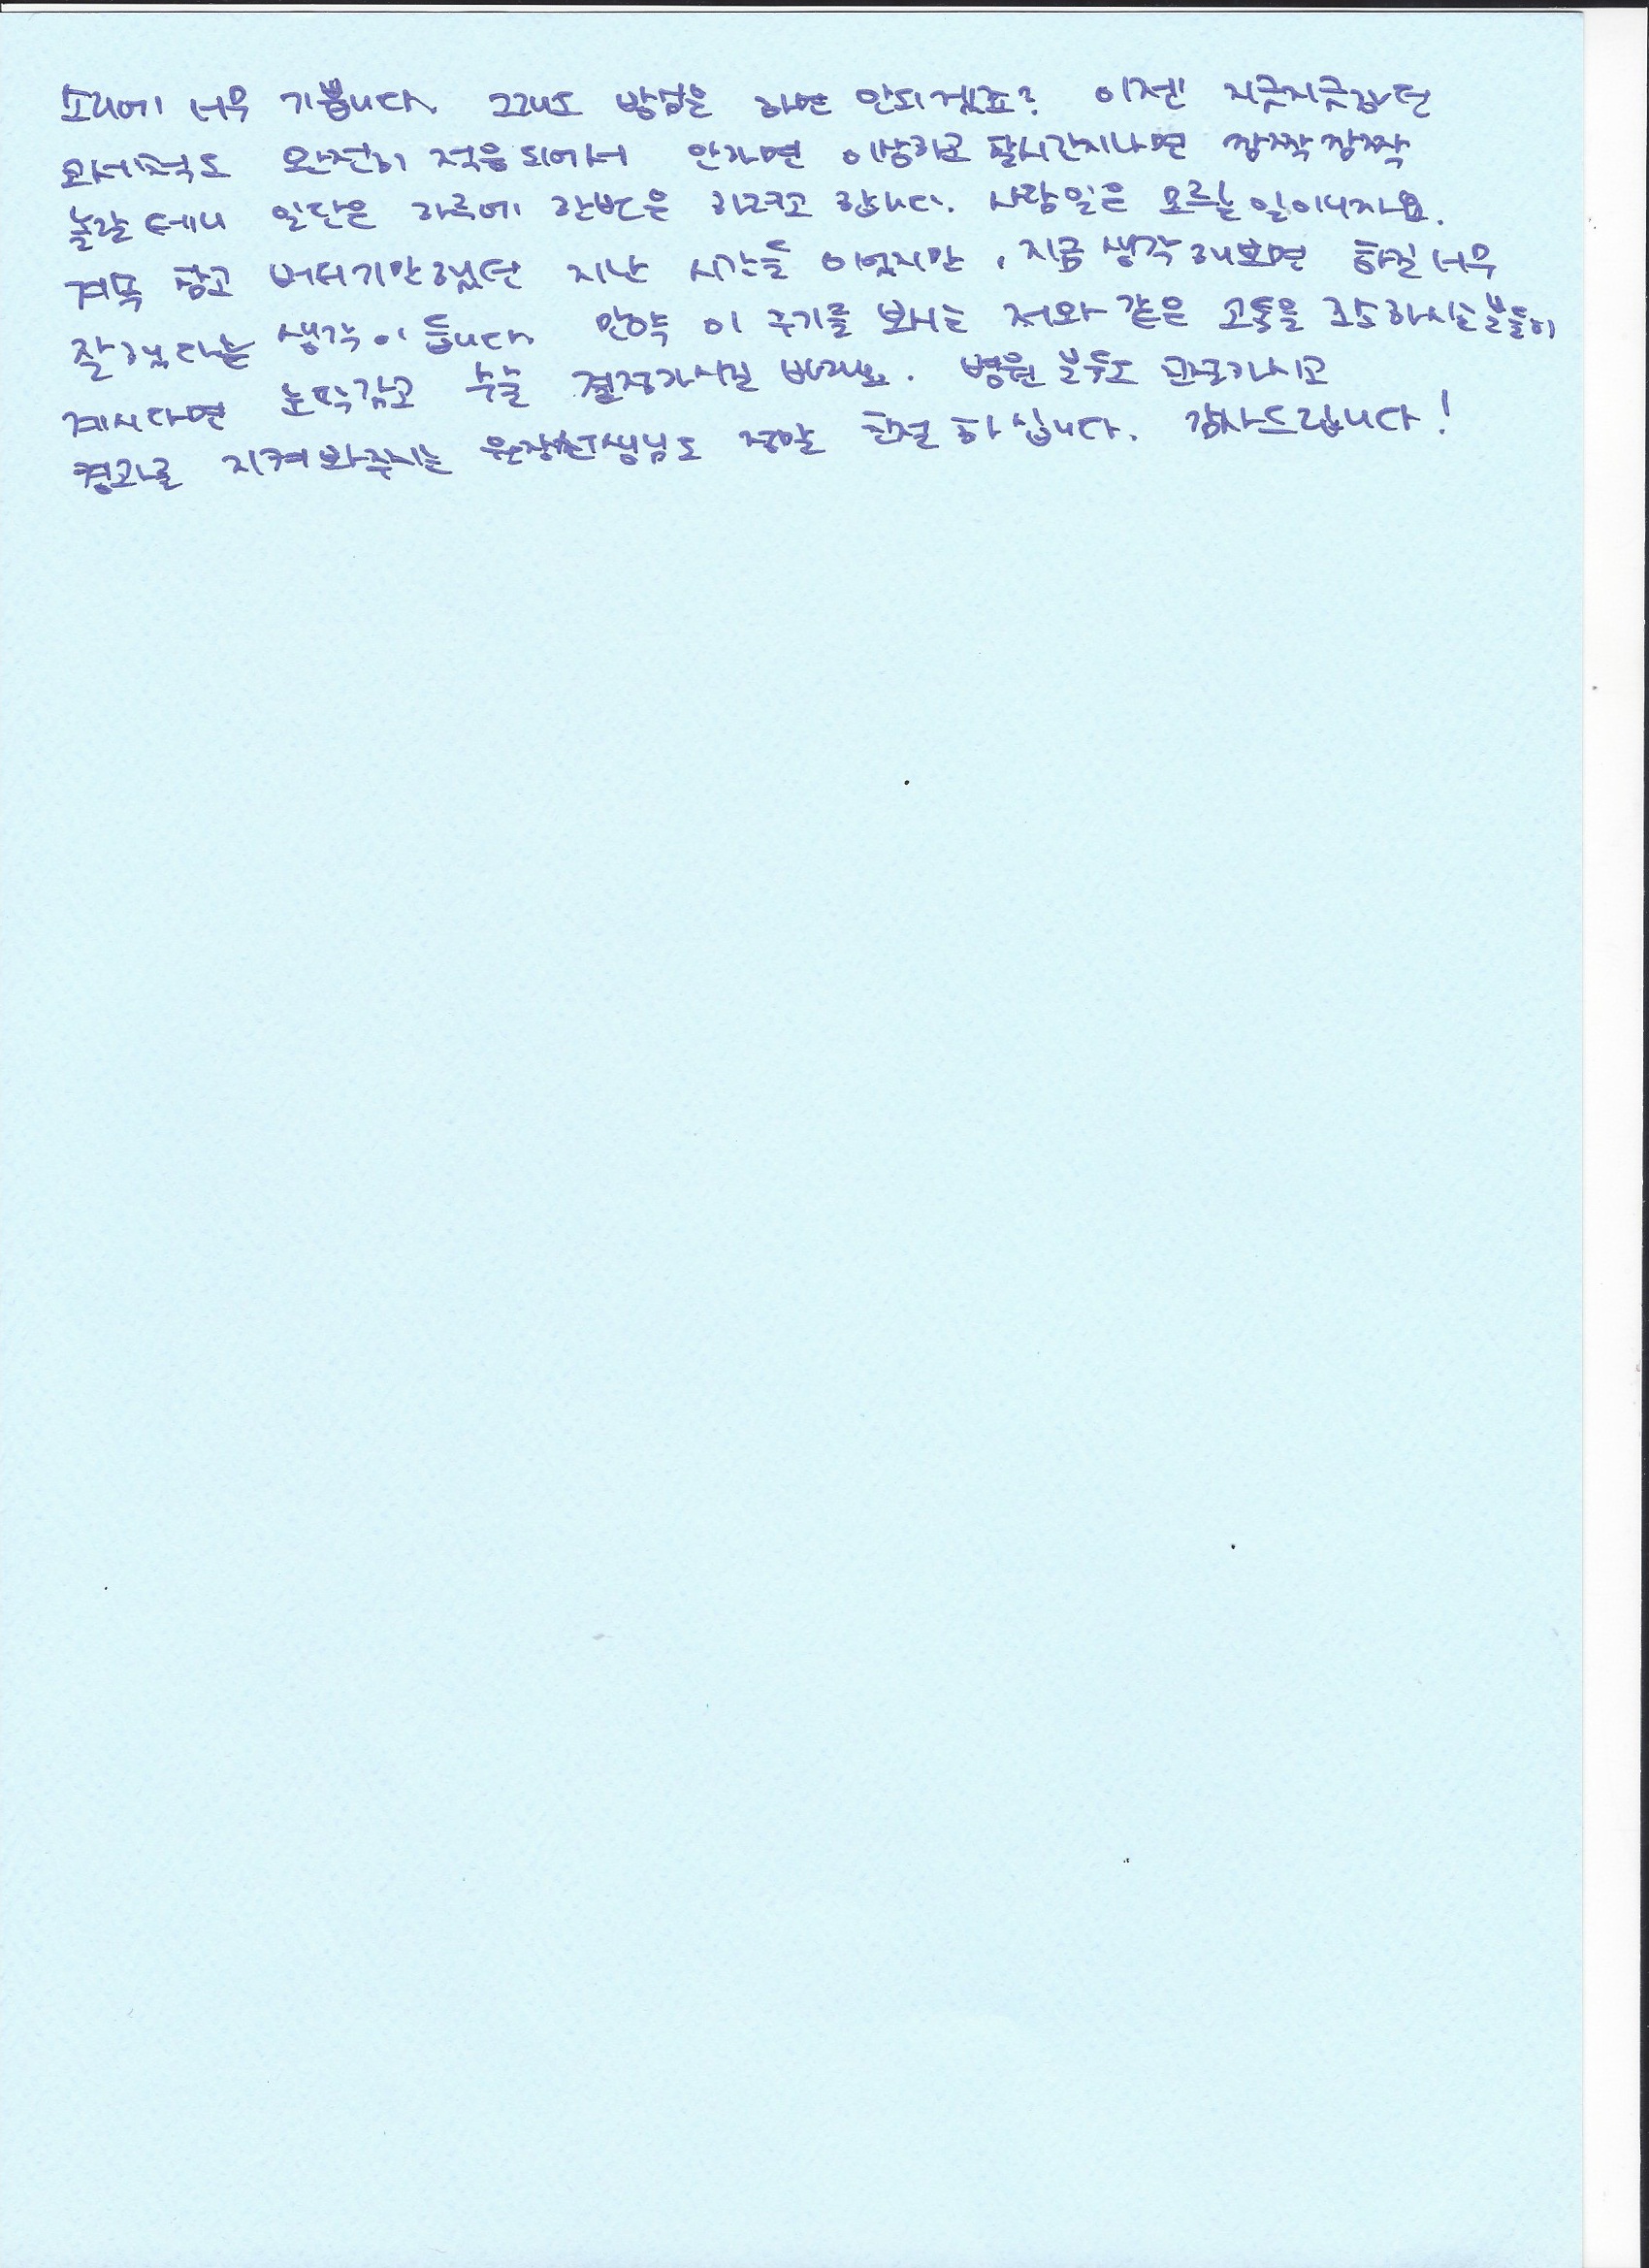 소리에 너무 기쁩니다. 그래도 방심은 하면 안되겠죠? 이젠 지긋지긋하던
코세척도 완전히 적응되어서 안하면 이상하고 몇시간지나면 깜짝깜짝
놀랄테니 일단은 하루에 한번은 하려고 합니다. 사람일은 모르는일이니까요.
계속 참고 버티기만했던 지난 시간들 이었지만, 지금 생각해보면 하길 너무
잘했다는 생각이 듭니다. 만약 이 후기를 보시는 저와 같은 고통을 호소하시는분들이
계시다면 눈딱감고 수술 결정하시길 바래요. 병원 분들도 친절하시고
경과를 지켜봐주시는 원장선생님도 정말 친절 하십니다. 감사드립니다!